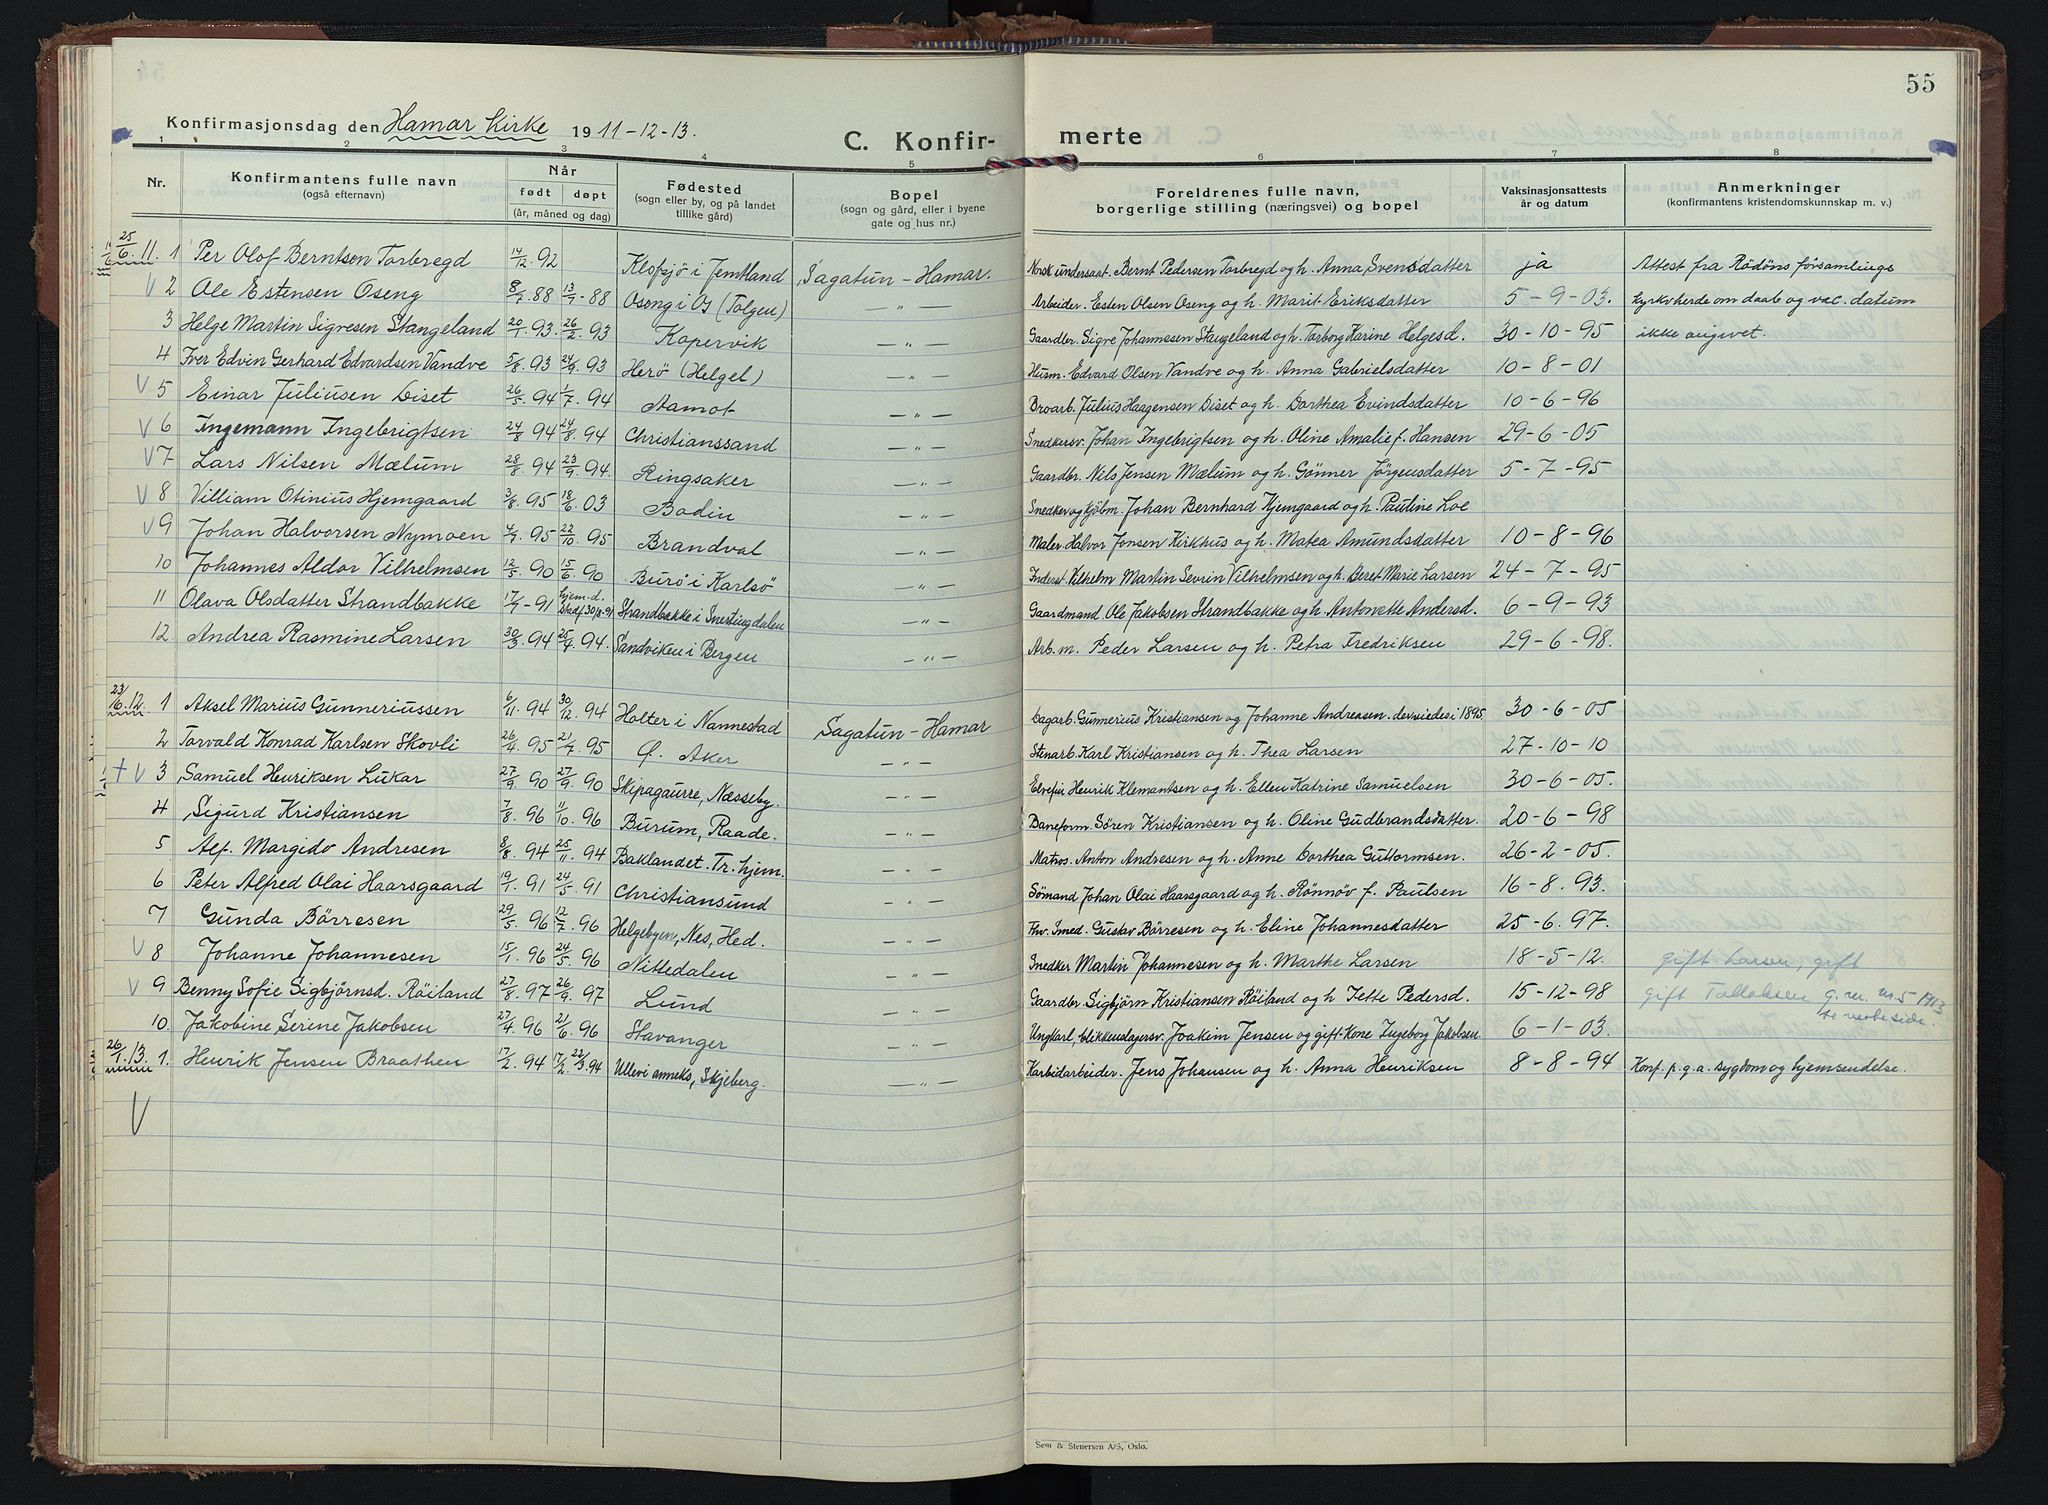 55
Konfirmasjonsdag den Hamar kirke 1911-12-13.
C. Konfir- merte
1 2 3 4 5 6 7 8
Nr. Konfirmantens fulle navn (også efternavn) Når født døpt (år, måned og dag) Fødested (sogn eller by, og på landet tillike gård) Bopel (sogn og gård, eller i byene gate og hus nr.) Foreldrenes fulle navn, borgerlige stilling (næringsvei) og bopel Vaksinasjonsattests år og datum Anmerkninger (konfirmantens kristendomskunnskap m. v.)
25/6.11. 1 Per Olof Berntsen Torbregd 14/12.92 Klofsjø i Jemtland Sagatun - Hamar. Norsk undersaat. Bernt Pedersen Torbregd og h. Anna Svensdatter ja Attest fra Rödöns församlings
V 2 Ole Estensen Oseng 8/7.88 13/7-88 Oseng i Os (Tolgen) — " — Arbeider. Esten Olsen Oseng og h. Marit Eriksdatter 5-9-03. kyrkoherde om daab og vac. datum
3 Helge Martin Sigvesen Stangeland 20/1.93. 26/2.93 Kopervik — " — Gaardbr. Sigve Johannesen Stangeland og h. Torborg Karine Helgesd. 30-10-95 ikke angivet.
4 Iver Edvin Gerhard Edvardsen Vandve 5/8.93 24/9.93 Herø (Helgel) — " — Husm. Edvard Olsen Vandve og h. Anna Gabrielsdatter 10-8-01
V 5 Einar Juliusen Diset 26/5.94 1/7.94 Aamot — " — Broarb. Julius Haagensen Diset og h. Dorthea Evindsdatter 10-6-96
V 6 Ingemann Ingebrigtsen 24/8 94 24/8.94 Christianssand — " — Snedkersv. Johan Ingebrigtsen og h. Oline Amalie f. Hansen 29-6-05
V 7 Lars Nilsen Mælum 28/8.94 23/9.94. Ringsaker — " — Gaardbr. Nils Jensen Mælum og h. Gönner Jörgensdatter 5-7-95
V 8 Villiam Otinius Hjemgaard 3/8.95 18/6.03 Bodin — " — Snedker og kjöbm. Johan Bernhard Hjemgaard og h. Pauline Loe
V 9 Johan Halvorsen Nymoen 4/7.95 22/10.95 Brandval — " — Maler. Halvor Jonsen Kirkhus og h. Matea Amundsdatter 10-8-96
10 Johannes Aldor Vilhelmsen 12/5.90 15/6.90 Burö i Karlsö — " — Inderst. Vilhelm Martin Sevrin Vilhelmsen og h. Beret Marie Larsen 24-7-95
11 Olava Olsdatter Strandbakke 17/7-91 hjem.d. Strandbakke i Snertingdalen — " — Gaardmand Ole Jakobsen Strandbakke og h. Antonette Andersd. 6-9-93
12. Andrea Rasmine Larsen 30/3.94 25/9.94. Sandviken i Bergen — " — Arb.m. Peder Larsen og h. Petra Fredriksen 29-6-98.
23/6.12. 1 Aksel Marius Gunneriussen 6/11.94 30/12.94 Holter i Nannestad Sagatun - Hamar Dagarb. Gunnerius Kristiansen og Johanne Andreasen 30-6-05
2 Torvald Konrad Karlsen Skovli 26/4.95 21/7.95 Ø. Aker — " — Stenarb. Karl Kristiansen og h. Thea Larsen 27-10-10
+ V 3 Samuel Henriksen Lukar 27/9.90 27/9.90 Skipagaurre, Næsseby. — " — Elvefin Henrik Klemantsen og h. Ellen Katrine Samuelsen 30-6-05.
4 Sigurd Kristiansen 7/8 96 11/10.96 Burum, Raade. — " — Baneform. Sören Kristiansen og h. Oline Gudbrandsdatter. 20-6-98
5 Alf. Margido Andresen 8/8.94 25/11.94 Baklandet. Tr. hjem. — " — Matros. Anton Andresen og h. Anne Dorthea Guttormsen. 26-2-05.
6 Peter Alfred Olai Haarsgaard 19/1.91 24/5.91 Christiansund — " — Sömand Johan Olai Haarsgaard og h. Rönnöv f. Paulsen 16-8.93.
7 Gunda Börresen 29/5.96 12/7.96 Helgebyen, Nes, Hed. — " — Fhv. Smed. Gustav Börresen og h. Eline Johannesdatter 25-6.97.
V 8 Johanne Johannesen 15/1.96 24/5.96 Nittedalen — " — Snedker Martin Johannesen og h. Marthe Larsen 18-5-12. gift Larsen, gift
V 9 Benny Sofie Sigbjörnsd. Röiland 27/8.97 26/9.97 Lund — " — Gaardbr Sigbjörn Kristiansen Röiland og h Jette Pedersd. 15-12-98 gift Tallaksen g.m. nr. 5 1913
10. Jakobine Serine Jakobsen 27/4.96 21/6.96 Stavanger — " — Ungkarl, blikkenslagersv. Joakim Jensen og gift Kone Ingeborg Jakobsen. 6-1-03. se neste side.
26/1.13. 1. Henrik Jensen Braathen 17/2.94 17/2.22/3.94 Ullerøi anneks, Skjeberg. — " — Karbidarbeider. Jens Johansen og h. Anna Henriksen 8-8-94 Konf. p.g.a. sygdom og hjemsendelse.
V
Sem & Stenersen A/S, Oslo.